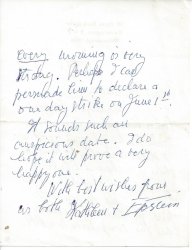 every morning is very
strong. Perhaps I can
persuade him to declare a
one day strike on June 1st.
It sounds such an
auspicious date. I do
hope it will prove a very
happy one.
With best wishes from
us both Kathleen & Epstein